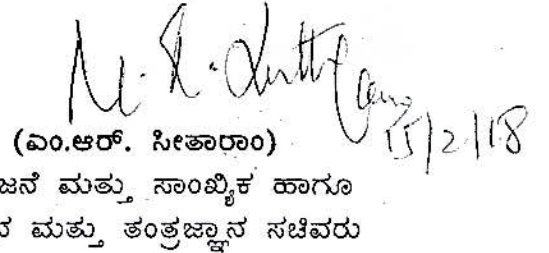 15/2/18
(ಎಂ.ಆರ್. ಸೀತಾರಾಂ)
ಮತ್ತು ಸಾಂಖ್ಯಿಕ ಹಾಗೂ
ಮತ್ತು ತಂತ್ರಜ್ಞಾನ ಸಚಿವರು